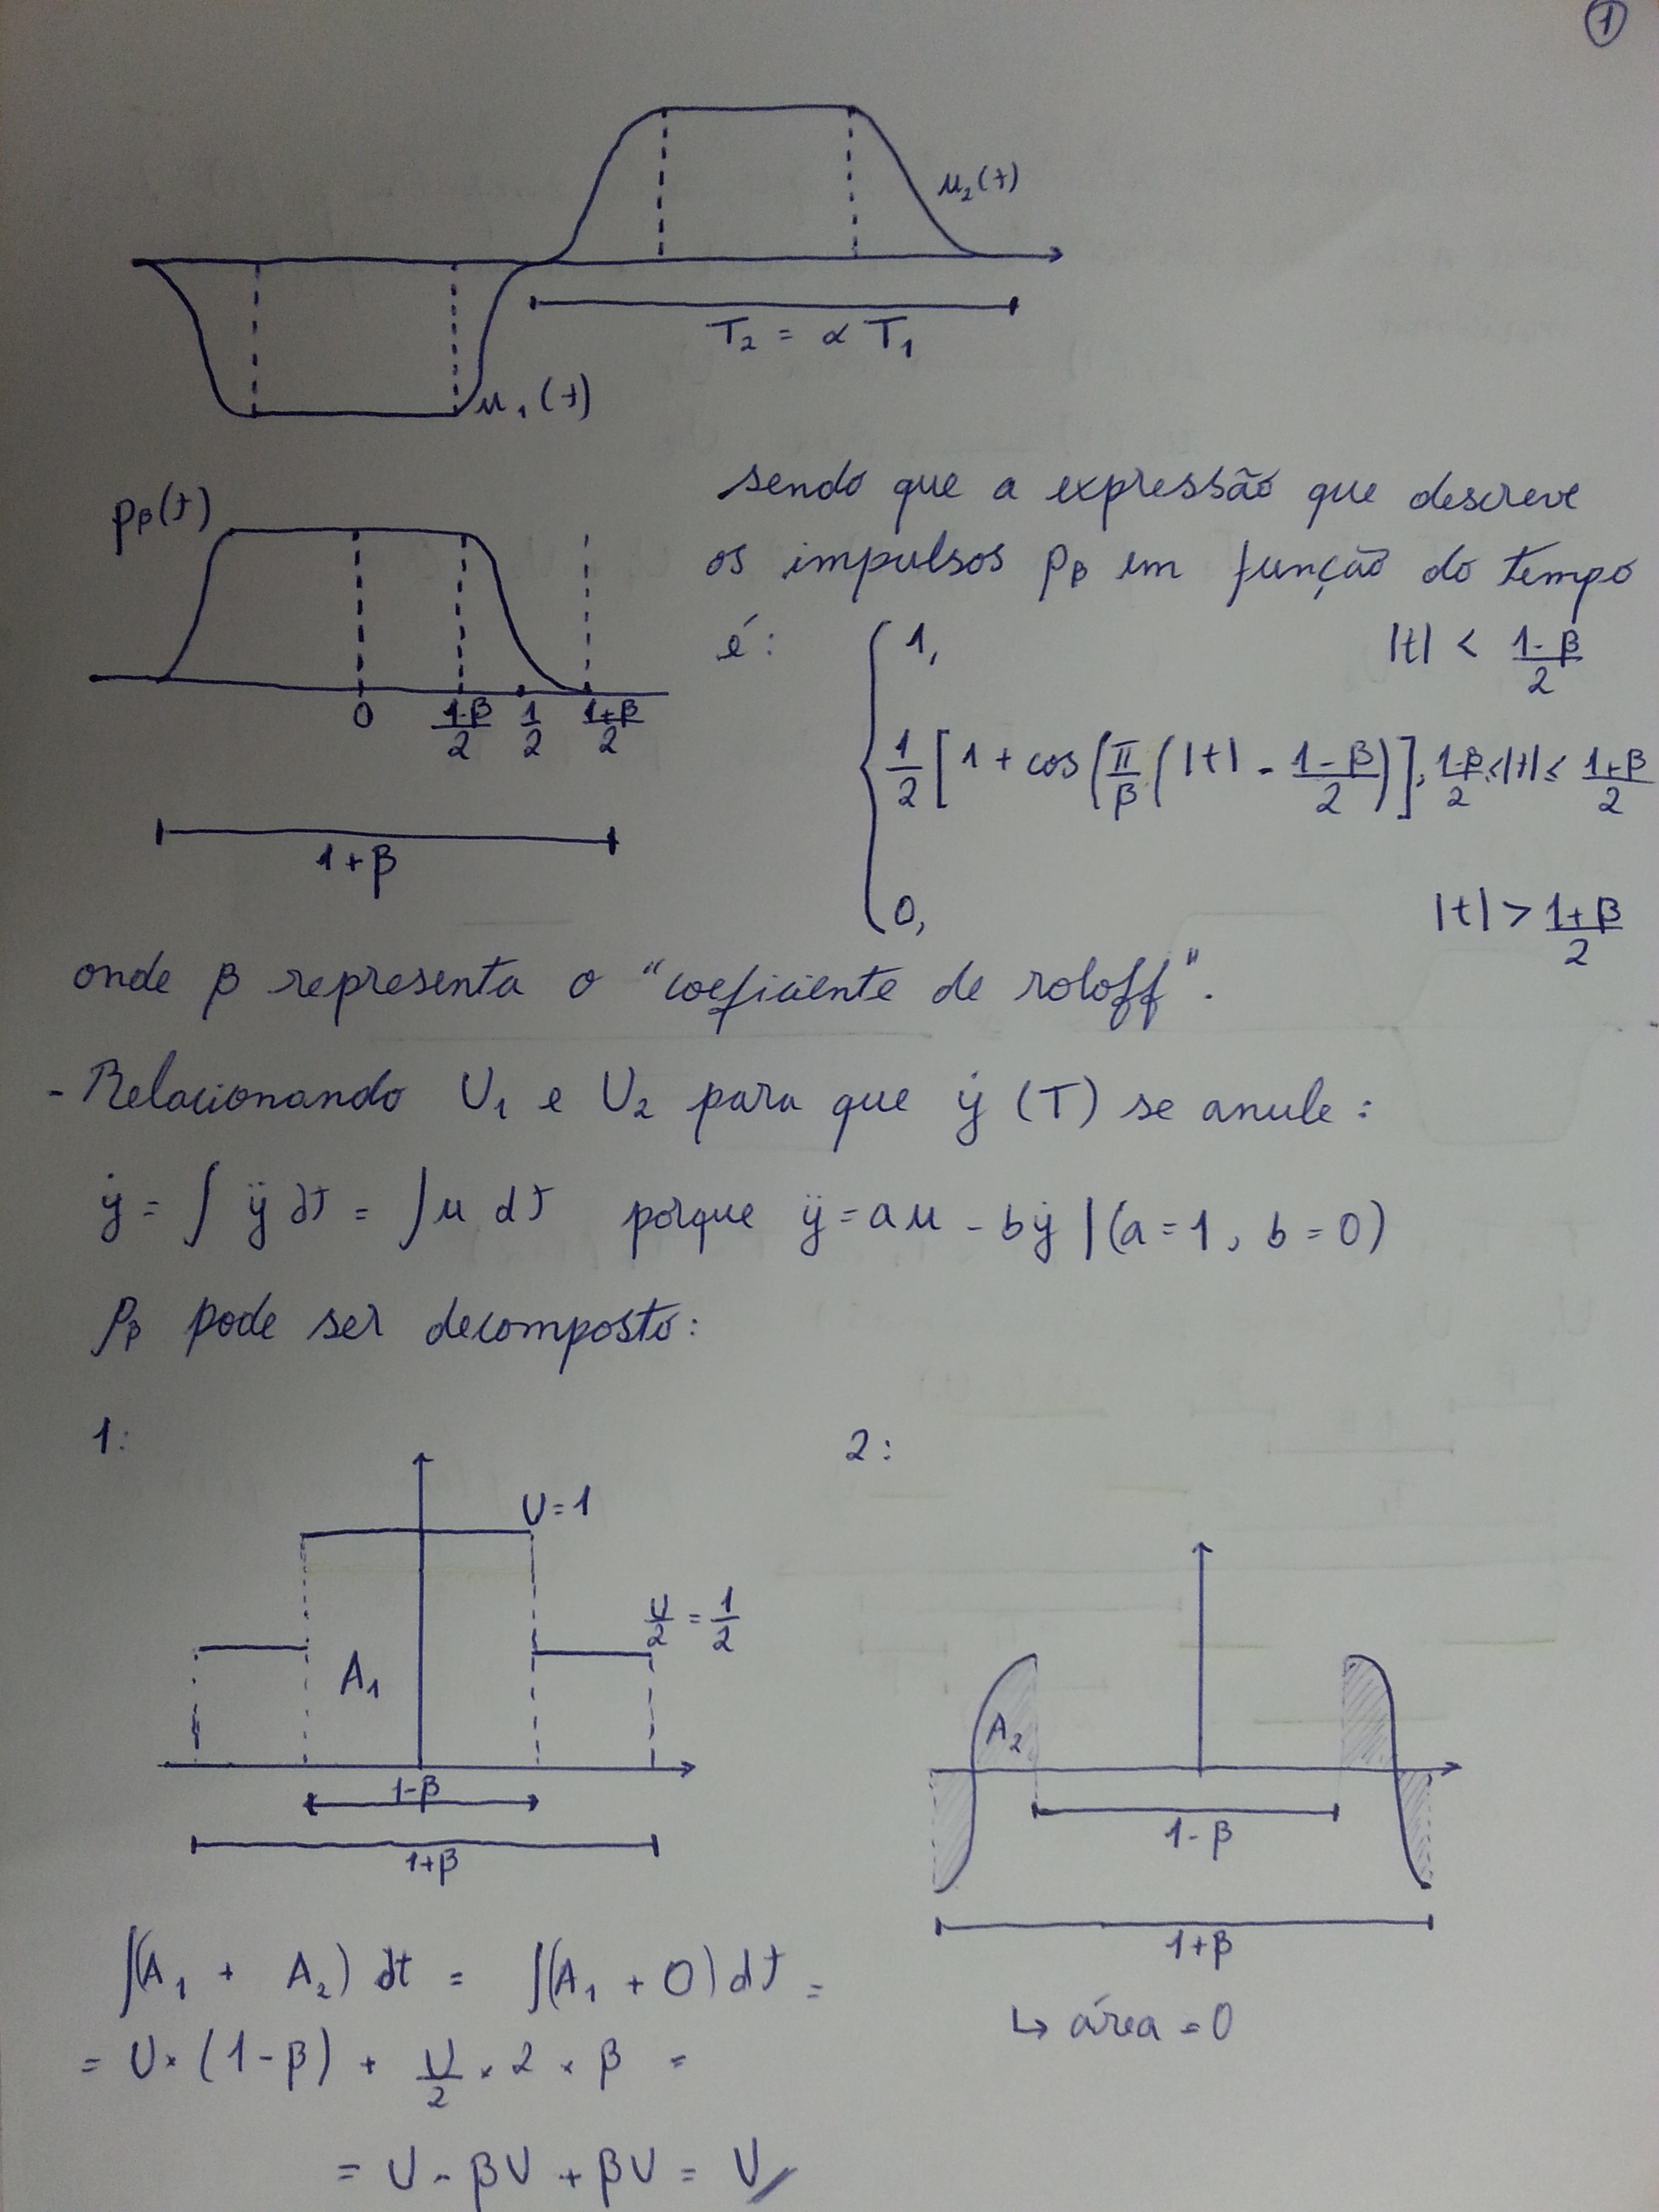 1
μ₂(t)
T₂ = α T₁
μ₁(t)
pᵦ(t)
0 (1-β)/2 1/2 (1+β)/2
1+β
sendo que a expressão que descreve
os impulsos pᵦ em função do tempo
é: { 1, |t| < (1-β)/2
1/2 [1 + cos(π/β (|t| - (1-β)/2)], (1-β)/2 ≤ |t| ≤ (1+β)/2
0, |t| > (1+β)/2
onde β representa o "coeficiente de roloff".
- Relacionando U₁ e U₂ para que ẏ (T) se anule:
ẏ = ∫ ÿ dt = ∫ μ dt porque ÿ = aμ - bẏ | (a = 1, b = 0)
Pᵦ pode ser decomposto:
1:
U=1
U/2 = 1/2
A₁
1-β
1+β
2:
A₂
1-β
1+β
↳ área = 0
∫(A₁ + A₂) dt = ∫(A₁ + 0) dt =
= U × (1-β) + U/2 × 2 × β =
= U - βU + βU = U//